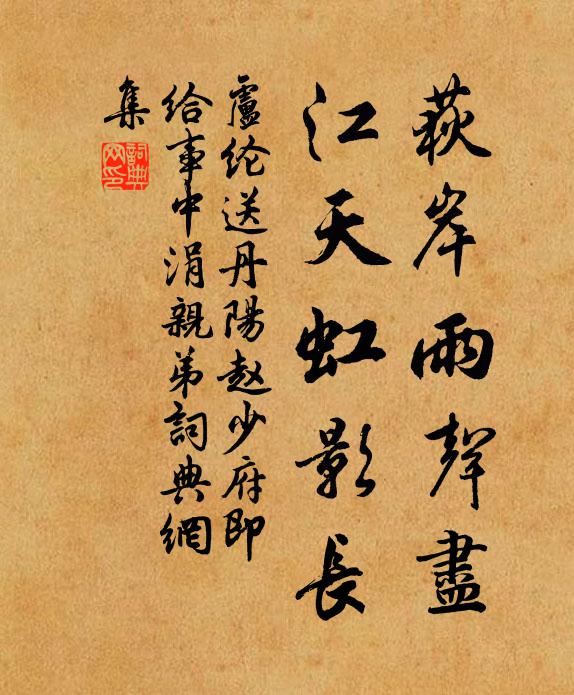 荻岸雨聲盡
江天虹影長
盧纶送丹陽赵少府即
给事中涓親弟詞典網
集
詞典网印